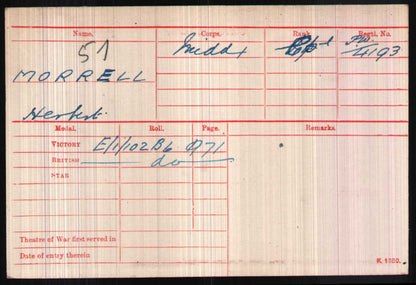 Name. Corps. Rank. Regtl. No.
51
MORRELL Middx Cpl PW/4193
Herbert.
Medal. Roll. Page. Remarks.
VICTORY E/1/102B6 971
BRITISH do
STAR
Theatre of War first served in
Date of entry therein
K 1380.